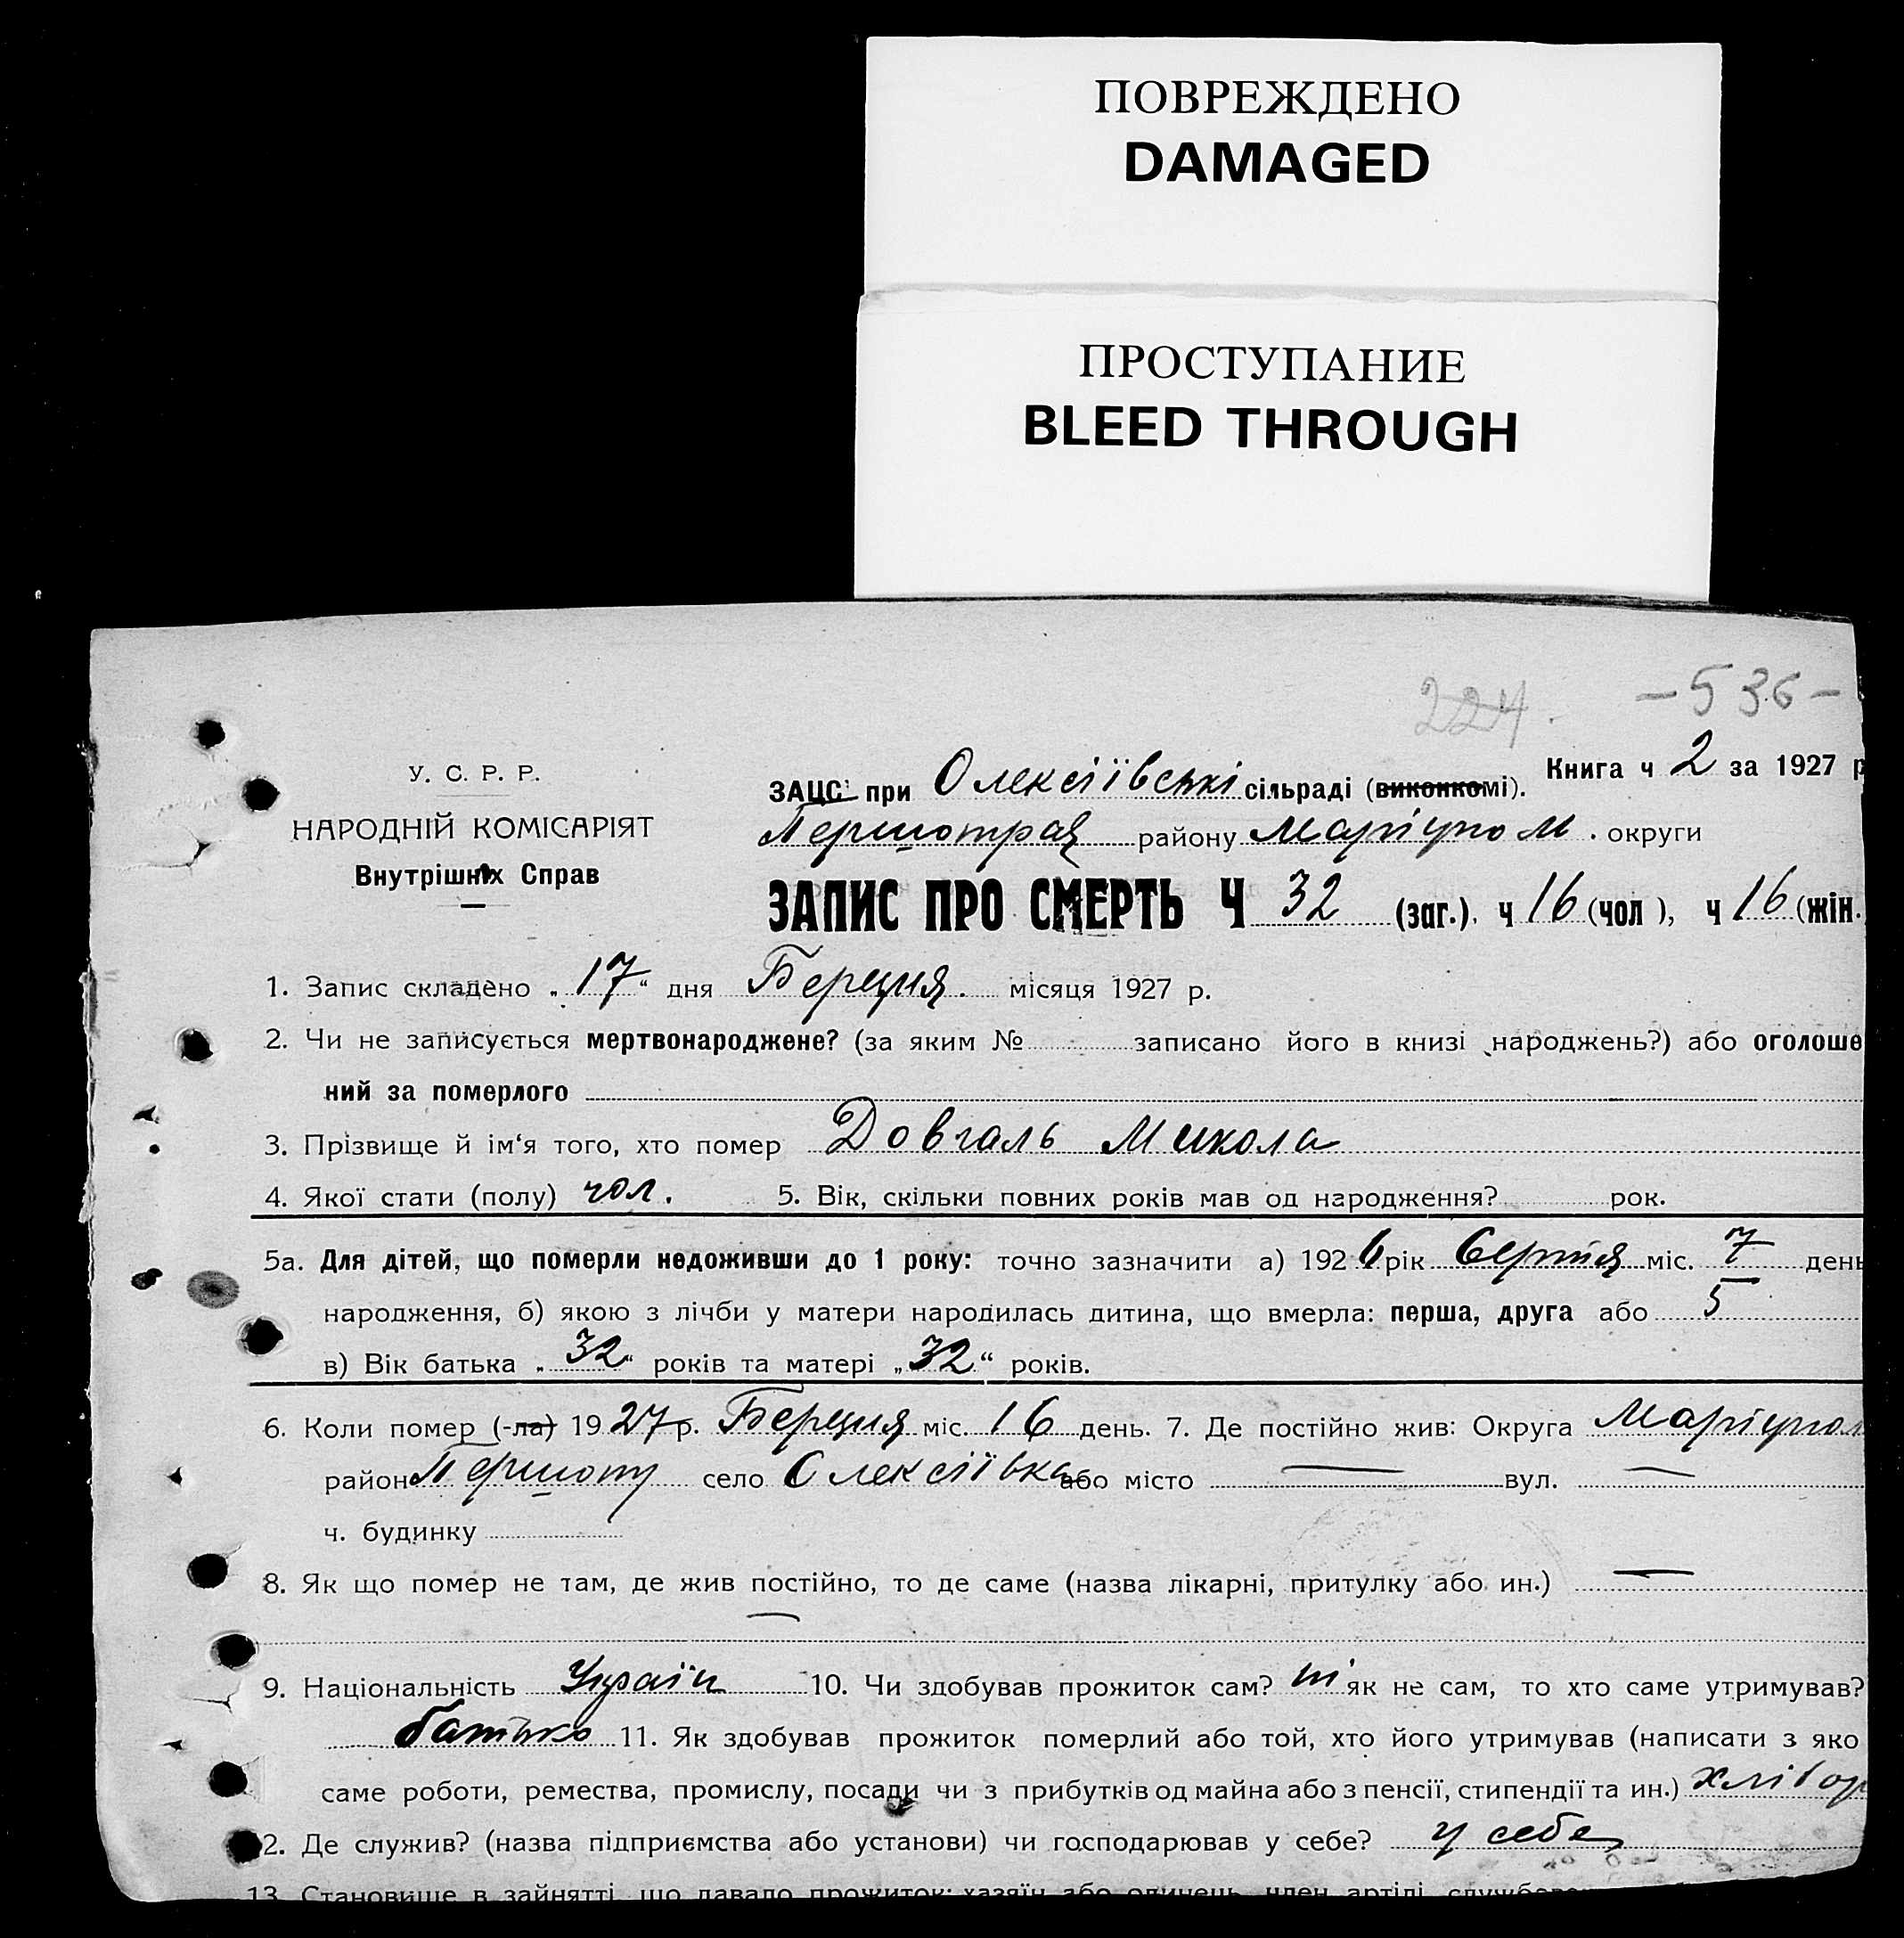 ПОВРЕЖДЕНО
DAMAGED
ПРОСТУПАНИЕ
BLEED THROUGH
224. – 536 –
У. С. Р. Р.
НАРОДНІЙ КОМІСАРІЯТ
Внутрішніх Справ
Книга ч 2 за 1927 р
ЗАЦС при Олексіївські сільраді (виконкомі).
Першотрав району Маріупол. округи
ЗАПИС ПРО СМЕРТЬ Ч 32 (заг.), ч 16 (чол ), ч 16 (жін.
1. Запис складено „17“ дня Берецня. місяця 1927 р.
2. Чи не записується мертвонароджене? (за яким № записано його в книзі народжень?) або оголоше
ний за померлого
3. Прізвище й ім‘я того, хто помер Довгаль Микола
4. Якої стати (полу) чол. 5. Вік, скільки повних років мав од народження? рок.
5а. Для дітей, що померли недоживши до 1 року: точно зазначити а) 1926 рік Серпня міс. 7 день
народження, б) якою з лічби у матери народилась дитина, що вмерла: перша, друга або 5
в) Вік батька „32“ років та матері „32“ років.
6. Коли помер (-ла) 1927 р. Берецня міс. 16 день. 7. Де постійно жив: Округа Маріупол
район Першотр село Олексіївка або місто — вул. —
ч. будинку
8. Як що помер не там, де жив постійно, то де саме (назва лікарні, притулку або ин.) —
—
9. Національність Україн 10. Чи здобував прожиток сам? ні як не сам, то хто саме утримував?
батько 11. Як здобував прожиток померлий або той, хто його утримував (написати з яко
саме роботи, ремества, промислу, посади чи з прибутків од майна або з пенсії, стипендії та ин.) хлібор
2. Де служив? (назва підприємства або установи) чи господарював у себе? у себе
13. Становище в зайнятті, що давало прожиток: хазяїн або одинець, член артілі,